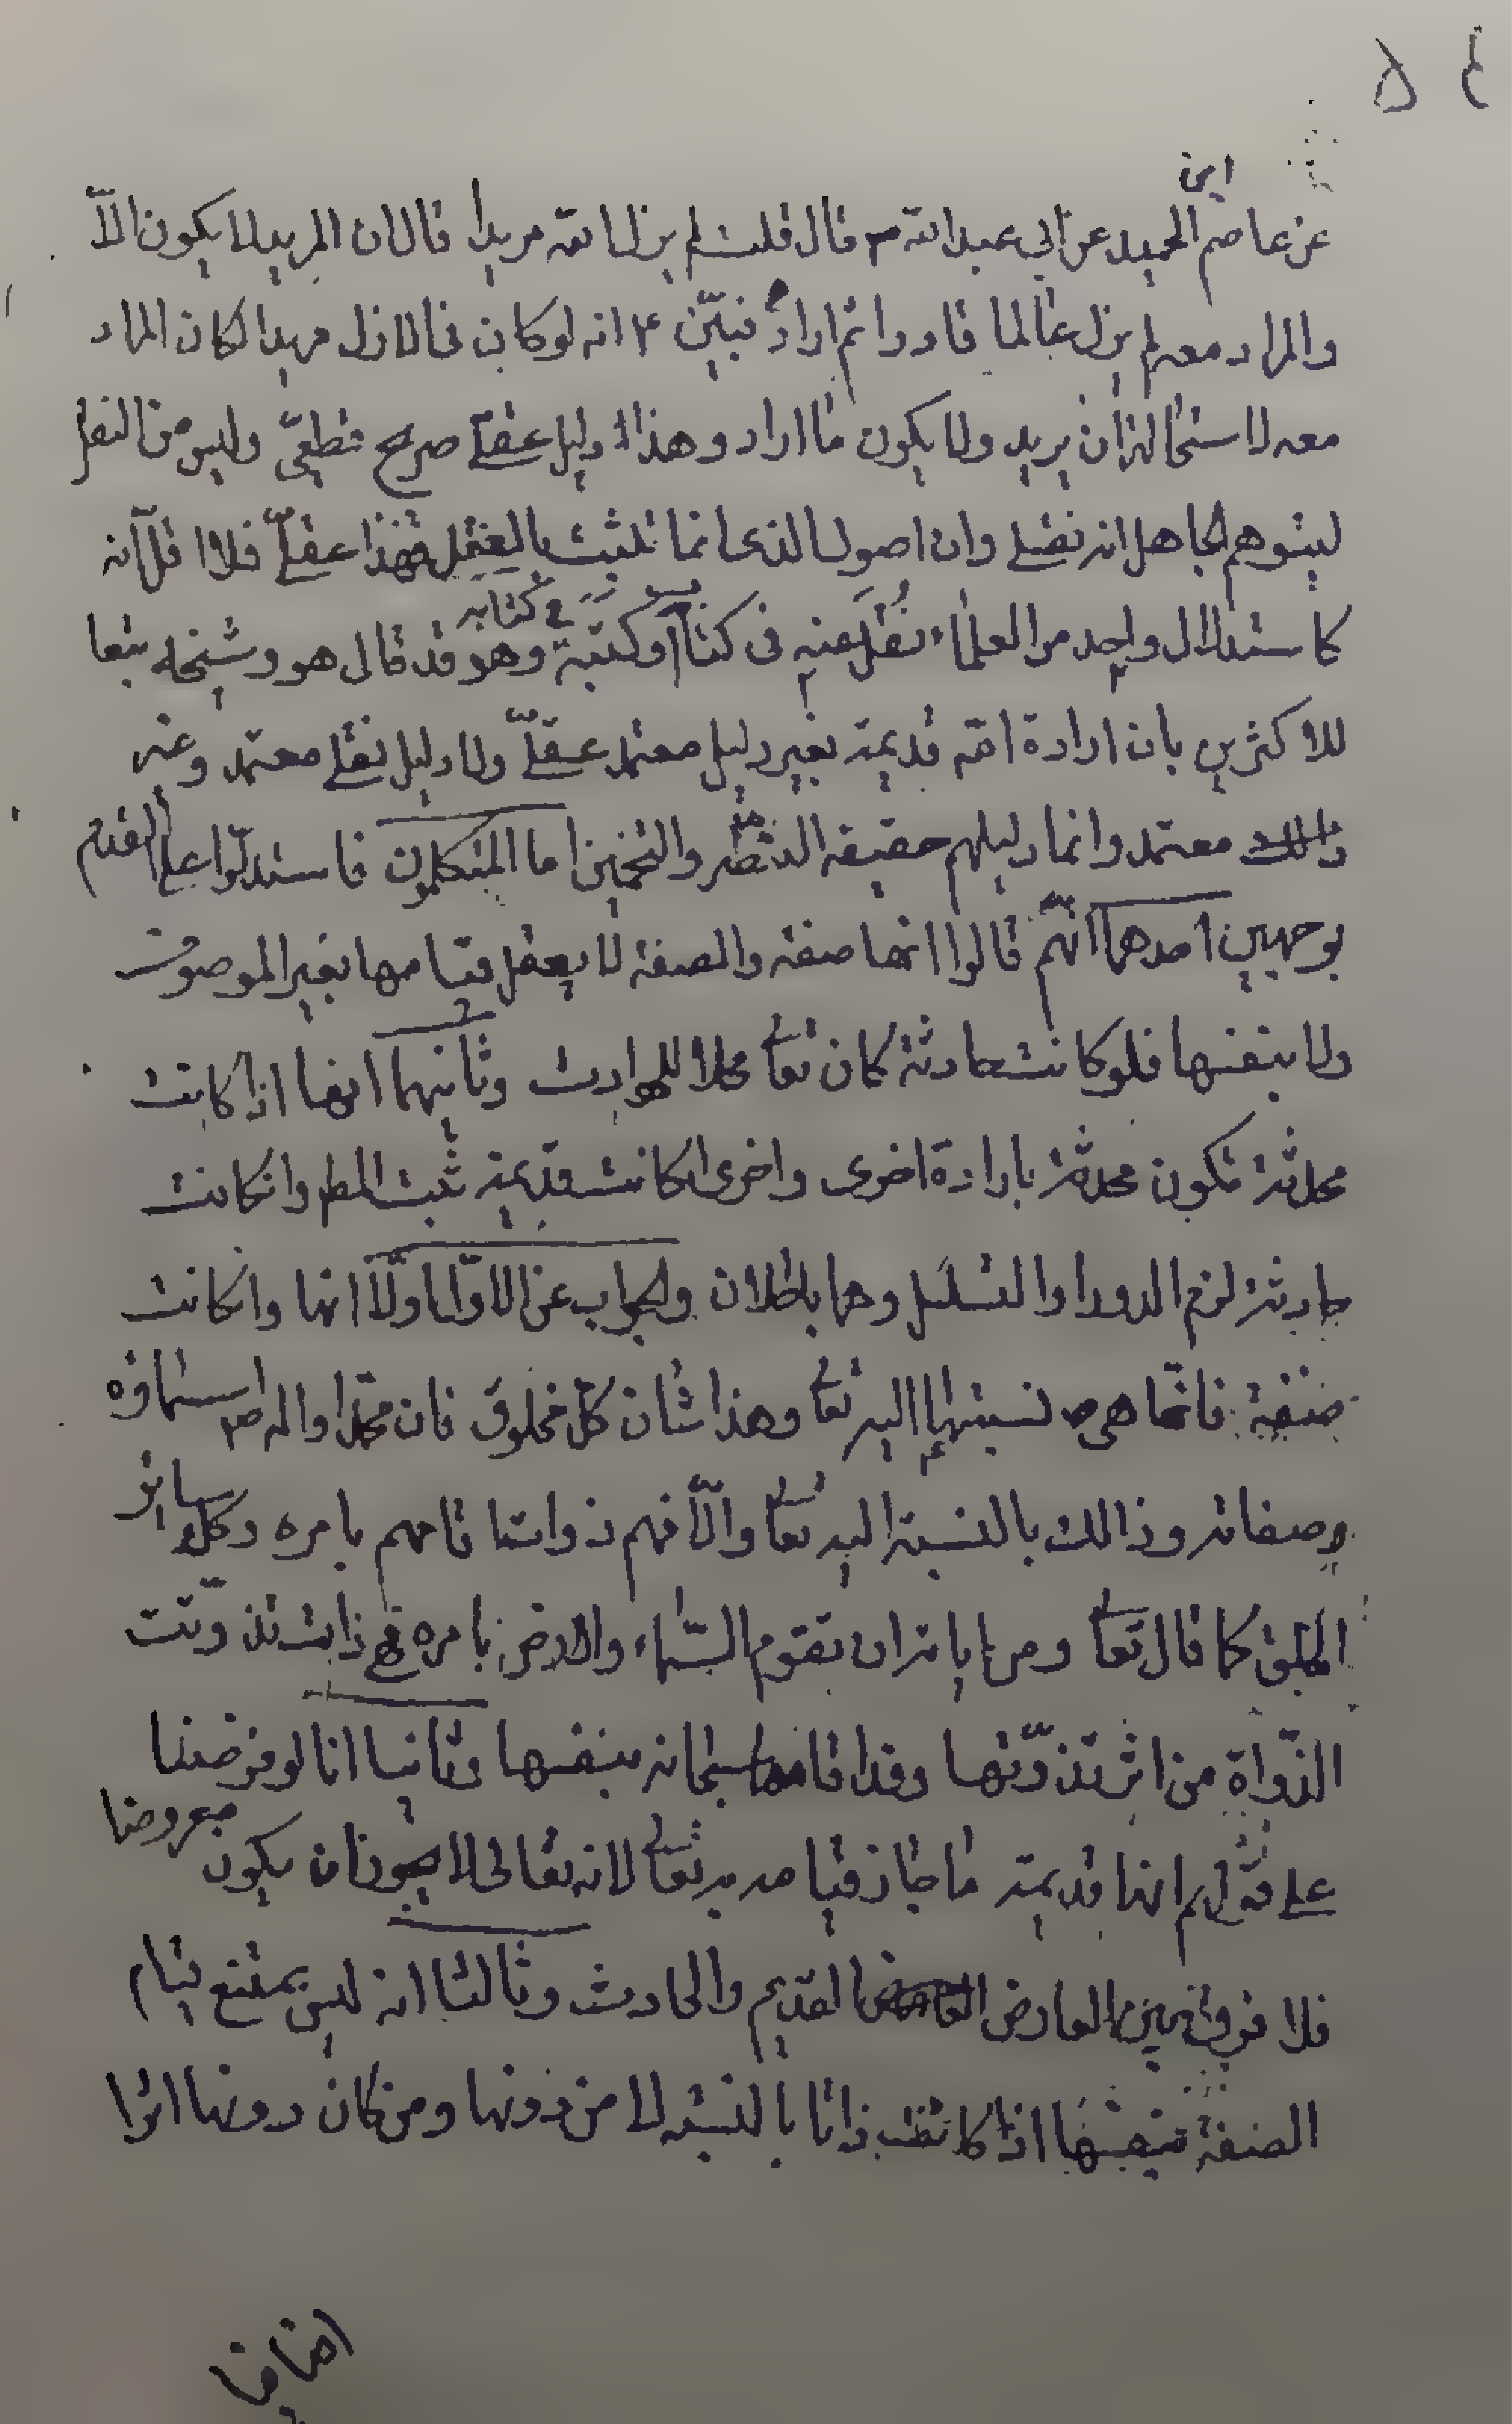 ٥٤
ابن
عن عاصم الحميد عن ابي عبدالله ع قال قلت لم يزل الله مريدا قال ان المريد لا يكون الّا
والمراد معه لم يزل عالما قادرا ثم اراد فبيّن ع انه لو كان فى الازل مريدا لكان المراد
معه لاستحالة ان يريد ولا يكون ما اراد وهذا دليل عقلي صريح قطعيّ وليس من النقل
ليتوهم الجاهل انه نقلي وان اصول الذى انما تثبت بالعقل فهذا عقليّ فلا اقل انه
كاستدلال واحد من العلماء نُقل عنه فى كتاب او كتبه فى كتابه وهو قد قال هو وشيخه تبعا
للاكثرين بان ارادة الله قديمة بغير دليل معتمد عقليّ ولا دليل نقلي معتمد وغير
ذلك معتمد وانما دليلهم حقيقة النظر والتخمين اما المتكلمون فاستدلّوا على القدم
بوجهين احدهما انّهم قالوا انها صفة والصفة لا يعقل قيامها بغير الموصوف
ولا بنفسها فلو كانت حادثة كان تعالى محلا للحوادث وثانيهما انها اذا كانت
محدثة تكون محدثة بارادة اخرى واخرى ان كانت قديمة ثبت المط وان كانت
حادثة لزم الدور او التسلسل وهما باطلان والجواب عن الاوّل اما اولّا انها وان كانت
صفة فانّما هى نسبتها اليه تعالى وهذا شان كلّ مخلوق فان محمّدا واله ص اسماؤه
وصفاته وذالك بالنسبة اليه تعالى والّا فهم ذوات اقامهم بامره وكل ساير
الخلق كما قال تعالى ومن اياته ان تقوم السّماء والارض بامره فهي ذات تذوّتت
الذّواة من اثر تذوّتها وقد اقامها سبحانه بنفسها وثانيا انا لو فرضنا
على قولهم انها قديمة ما جاز قيامه به تعالى لانه تعالى لا يجوز ان يكون معروضا
فلا فرق بين العارض القديم والحادث وثالثا انه ليس بممتنع قيام
الصفة بنفسها اذا كانت ذاتا بالنسبة لا من دونها ومن كان دونها اثرا